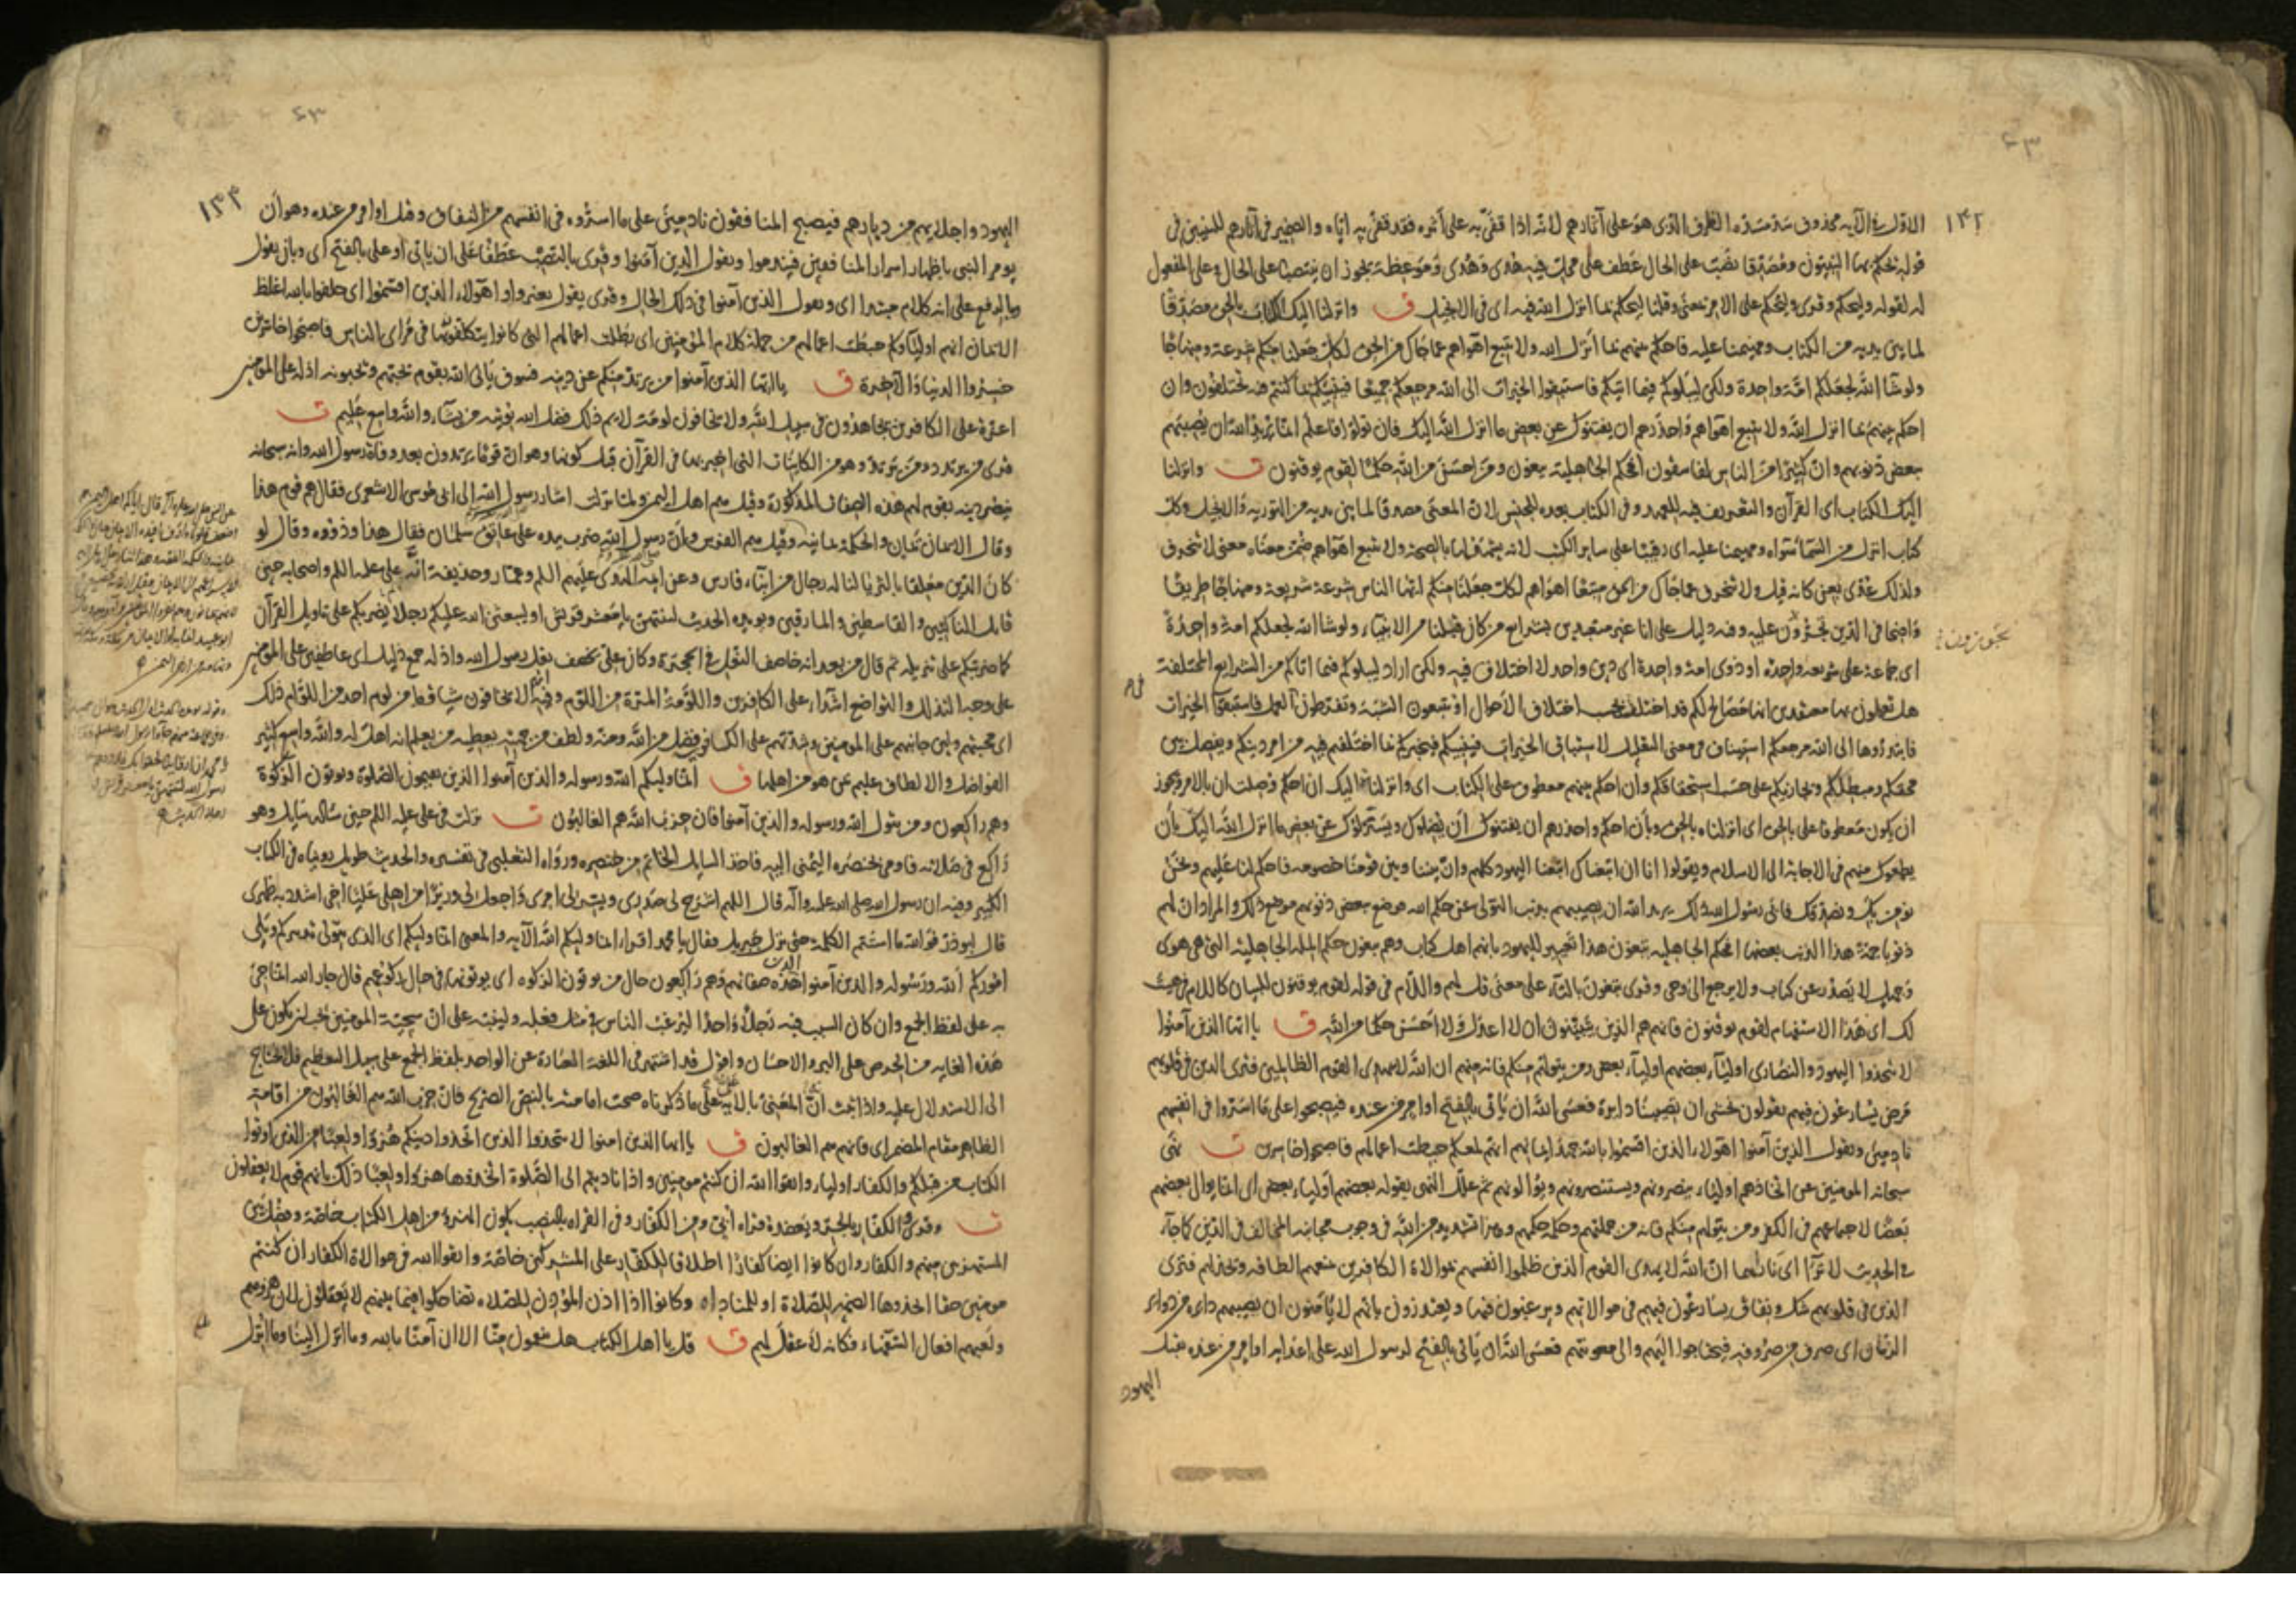 ١٤٢
الاوّل في الآية محذوف سدّ مسدّه الظرف الذى هو على آثارهم لانّه اذا قفّى به على أثره فقد قفّى به ايّاه والضمير في آثارهم للنبيين في
قوله يحكم بها النبيّون ومصدّقا نصب على الحال عطف على محل فيه هدى وهدى وموعظة يجوز ان ينتصبا على الحال وعلى المفعول
له لقوله وليحكم وقرى وليحكم على الامر بمعنى وقلنا ليحكم بما انزل الله فيه اى في الانجيل ق وانزلنا اليك الكتاب بالحق مصدّقًا
لما بين يديه من الكتاب ومهيمنا عليه فاحكم بينهم بما أنزل الله ولا تتبع اهواءهم عما جاءك من الحق لكلّ جعلنا منكم شرعة ومنهاجًا
ولو شاء الله لجعلكم امّة واحدة ولكن ليبلوكم فيما اتيكم فاستبقوا الخيرات الى الله مرجعكم جميعا فينبئكم بما كنتم فيه تختلفون وان
احكم بينهم بما انزل الله ولا تتبع اهواءهم واحذرهم ان يفتنوك عن بعض ما انزل الله اليك فان تولّوا فاعلم انّما يريد الله ان يصيبهم
ببعض ذنوبهم وانّ كثيرًا من الناس لفاسقون أفحكم الجاهلية يبغون ومن احسن من الله حكمًا لقوم يوقنون ت وانزلنا
اليك الكتاب اى القرآن والتعريف فيه للعهد وفي الكتاب بعده للجنس لانّ المعنى مصدقا لما بين يديه من التورية والانجيل وكل
كتاب انزل من السّماء سواه ومهيمنا عليه اى رقيبًا على ساير الكتب لانه يشهد لها بالصحّة ولا تتبع اهواءهم ضمّن معناه معنى لا تنحرف
ولذلك عدّى بعن كانه قيل ولا تنحرف عما جاءك من الحق متبعًا اهواءهم لكل جعلنا منكم ايّها الناس شرعة شريعة ومنهاجًا طريقًا
واضحا في الدّين تجرون عليه وفيه دليل على انا غير متعبدين بشرايع من كان قبلنا من الانبياء ولو شاء الله لجعلكم امة واحدةً
اى جماعة على شريعه واحدة او ذوى امّة واحدة اى دين واحد لا اختلاف فيه ولكن اراد ليبلوكم فيما اتاكم من الشرايع المختلفة
هل تعملون بها معتقدين انها مصالح لكم قد اختلف بحسب اختلاف الاحوال او تتبعون الشبه وتفرّطون في العمل فاستبقوا الخيرات
فابتدروها الى الله مرجعكم استيناف في معنى التعليل لاستباق الخيرات فينبئكم فيخبركم بما اختلفتم فيه من امر دينكم ويفصل بين
محقكم ومبطلكم ويجازيكم على حسب استحقاقكم وان احكم بينهم معطوف على الكتاب اى وانزلنا اليك ان احكم وصلت ان بالامر ويجوز
ان يكون معطوفا على بالحق اى انزلناه بالحق وبأن احكم واحذرهم ان يفتنوك أن يضلّوك ويستزلّوك عن بعض ما انزل الله اليك بأن
يطمعوك منهم في الاجابة الى الاسلام ويقولوا انا ان اتبعناك اتبعنا اليهود كلهم وانّ بيننا وبين قومنا خصومه فاحكم لنا عليهم ونحن
نؤمن بك ونصدّقك فأبى رسول الله ذلك يريد الله ان يصيبهم بذنب التولّى عن حكم الله فوضع ببعض ذنوبهم موضع ذلك والمراد ان لهم
ذنوبا جمّة هذا الذنب بعضها افحكم الجاهلية يبغون هذا تعيير لليهود بانهم اهل كتاب وهم يبغون حكم الملة الجاهلية التى هى هوى
وجهل لا يصدر عن كتاب ولا يرجع الى وحى وقرى تبغون بالتاء على معنى قل لهم واللام في قوله لقوم يوقنون للبيان كاللام في هيت
لك اى هذا الاستفهام لقوم يوقنون فانهم هم الذين يتبيّنون ان لا اعدل ولا احسن حكما من الله ق يا ايها الذين آمنوا
لا تتخذوا اليهود والنصارى اولياء بعضهم اولياء بعض ومن يتولّهم منكم فانه منهم ان الله لا يهدى القوم الظالمين فترى الذين في قلوبهم
مرض يسارعون فيهم يقولون نخشى ان تصيبنا دايرة فعسى الله ان يأتى بالفتح او امر من عنده فيصبحوا على ما اسرّوا في انفسهم
نادمين ويقول الذين آمنوا اهؤلاء الذين اقسموا بالله جهد ايمانهم انهم لمعكم حبطت اعمالهم فاصبحوا خاسرين ت نهى
سبحانه المومنين عن اتخاذهم اولياء ينصرونهم ويستنصرونهم ويؤالونهم ثم علّل النهى بقوله بعضهم اولياء بعض اى انما يوالى بعضهم
بعضًا لاجتماعهم في الكفر ومن يتولهم منكم فانه من جملتهم وحكمه حكمهم وهذا تشديد من الله في وجوب مجانبة المخالف في الدّين كما جاء
في الحديث لا تراءا اى ناراهما انّ الله لا يهدى القوم الذين ظلموا انفسهم بموالاة الكافرين يمنعهم الطافه ويخذلهم فترى
الذين في قلوبهم شك ونفاق يسارعون فيهم في موالاتهم ويرغبون فيها ويعتذرون بانّهم لا يأمنون ان يصيبهم دايرة من دواير
الزمان اى صرف من صروفه فيحتاجوا اليهم والى معونتهم فعسى الله ان يأتى بالفتح لرسول الله على اعدايه او امر من عنده بقتل
اليهود
١٤٣
اليهود واجلايهم من ديارهم فيصبح المنافقون نادمين على ما اسرّوه في انفسهم من النفاق وقيل او امر من عنده وهو أن
يومر النبى باظهار اسرار المنافقين فيندموا ويقول الذين آمنوا وقرى بالنصب عطفًا على ان يأتى او على بالفتح اى وبان يقول
وبالرفع على انه كلام مبتدا اى ويقول الذين آمنوا في ذلك الحال وقرى يقول بغير واو اهؤلاء الذين اقسموا اى حلفوا بالله اغلظ
الايمان انهم اولياؤكم حبطت اعمالهم من جملة كلام المؤمنين اى بطلت اعمالهم التى كانوا يتكلّفونها في مرأى الناس فاصبحوا خاسرين
خسروا الدنيا والآخرة ق يا ايها الذين آمنوا من يرتدّ منكم عن دينه فسوف يأتى الله بقوم يحبهم ويحبونه اذلة على المؤمنين
اعزة على الكافرين يجاهدون في سبيل الله ولا يخافون لومة لايم ذلك فضل الله يؤتيه من يشاء والله واسع عليم ت
قرى من يرتدد ومن يرتدّ وهو من الكاينات التى اخبر بها في القرآن قبل كونها وهو ان قومًا يرتدون بعد وفاة رسول الله وانه سبحانه
ينصر دينه بقوم لهم هذه الصفات المذكورة وقيل هم اهل اليمن ولما نزلت اشار رسول الله الى ابى موسى الاشعرى فقال هم قوم هذا
وقال الايمان يمان والحكمة يمانية وقيل هم الفرس وأن رسول الله ضرب يده على عاتق سلمان فقال هذا وذووه وقال لو
كان الدّين معلقا بالثريا لناله رجال من ابناء فارس وعن ايمة الهدى عليهم السلم وعمّار وحذيفة انّه علىّ عليه السلم واصحابه حين
قاتل الناكثين والقاسطين والمارقين ويويده الحديث لتنتهنّ يا معشر قريش او ليبعثنّ الله عليكم رجلا يضربكم على تاويل القرآن
كما ضربتكم على تنزيله ثم قال من بعد انه خاصف النعل في الحجرة وكان علىّ يخصف نعل رسول الله واذلة جمع ذليل اى عاطفين على المؤمنين
على وجه التذلل والتواضع اشدّاء على الكافرين واللومة المرّة من اللوم وفيه انهم لا يخافون شيئا قط من لوم احد من اللوّام ذلك
اى محبتهم ولين جانبهم على المومنين وشدّتهم على الكافرين فضل من الله ومنّه ولطف من جهته يعطيه من يعلم انه اهل له والله واسع كثير
الفواضل والالطاف عليم بمن هو من اهلها ق انما وليكم الله ورسوله والذين آمنوا الذين يقيمون الصلوة ويوتون الزكوة
وهم راكعون ومن يتول الله ورسوله والذين آمنوا فان حزب الله هم الغالبون ت نزلت في على عليه السلم حين سأله سايل وهو
راكع في صلاته فاومى بخنصره اليمنى اليه فاخذ السايل الخاتم من خنصره ورواه الثعلبى في تفسيره والحديث طويل رويناه في الكتاب
الكبير وفيه ان رسول الله صلى الله عليه وآله قال اللهم اشرح لى صدرى ويسر لى امرى واجعل لى وزيرًا من اهلى عليّا اخى اشدد به ظهرى
قال ابو ذرّ فوالله ما استتم الكلمة حتى نزل جبريل وقال يا محمد اقرا انما وليكم الله الآية والمعنى انما وليكم اى الذى يتولى تدبيركم ويلى
اموركم الله ورسوله والذين آمنوا الذين هذه صفاتهم وهم راكعون حال من يوتون الزكوة اى يوتونها في حال ركوعهم قال جار الله انما جئ
به على لفظ الجمع وان كان السبب فيه رجلًا واحدًا ليرغب الناس في مثل فعله ولينبه على انّ سجيّة المومنين يجب ان تكون على
هذه الغاية من الحرص على البر والاحسان واقول قد اشتهر في اللغة العبارة عن الواحد بلفظ الجمع على سبيل التعظيم فلا يحتاج
الى الاستدلال عليه واذا ثبت انّ المعنىّ بالاية علىّ ما ذكرناه صحت امامته بالنص الصريح فان حزب الله هم الغالبون من اقامة
الظاهر مقام المضمر اى فانهم هم الغالبون ق يا ايها الذين امنوا لا تتخذوا الذين اتخذوا دينكم هزوًا ولعبًا من الذين اوتوا
الكتاب من قبلكم والكفار اولياء واتقوا الله ان كنتم مومنين واذا ناديتم الى الصّلوة اتخذوها هزوًا ولعبًا ذلك بانهم قوم لا يعقلون
ت وقرى والكفّار بالجر ويعضده قراءة أبىّ ومن الكفّار وفي القراءة بالنصب يكون الهزء من اهل الكتاب خاصة وفصل بين
المستهزئين منهم والكفار وان كانوا ايضا كفّارًا اطلاقا للكفّار على المشركين خاصّة واتقوا الله في موالاة الكفار ان كنتم
مومنين حقا اتخذوها الضمير للصّلاة او للمناداة وكانوا اذا اذن المؤذن للصلاة تضاحكوا فيما بينهم لا يعقلون لان هزوهم
ولعبهم افعال السّفهاء فكانه لا عقل لهم ق قل يا اهل الكتاب هل تنقمون منّا الا ان آمنّا بالله وما انزل الينا وما انزل